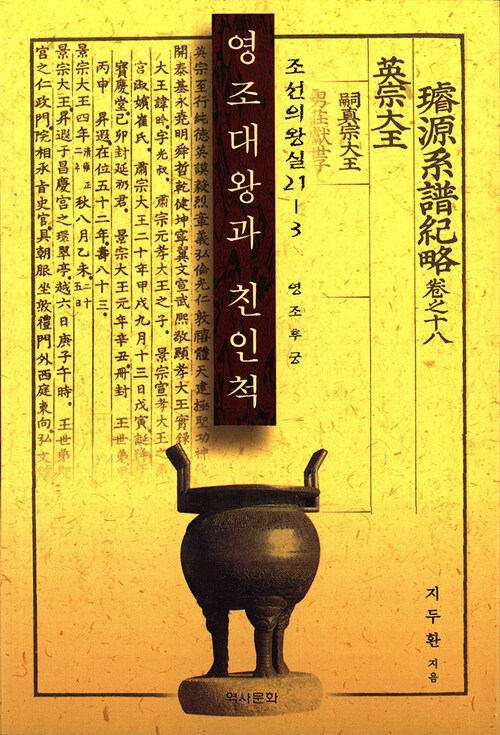 璿源系譜紀略 卷之十八
英宗大王
嗣眞宗大王
男莊獻世子
조선의 왕실 21-3 영조후궁
영조대왕과 친인척
英宗至行純德英謨毅烈章義弘倫光仁敦禧體天建極聖功神化
開泰基永堯明舜哲乾健坤寧翼文宣武熙敬顯孝大王實錄
大王諱昑字光叔。肅宗元孝大王之子。景宗宣孝大王之弟
宮淑嬪崔氏。肅宗大王二十年甲戌九月十三日戊寅誕降于
寶慶堂。己卯封延礽君。景宗大王元年辛丑冊封 王世弟甲
丙申 昇遐。在位五十二年。壽八十三。
景宗大王四年 清雍正二年 秋八月乙未。二十五日
景宗大王昇遐于昌慶宮之環翠亭越六日庚子午時。王世弟即
宮之仁政門。院相承旨史官。具朝服坐敦禮門外西庭東向。弘文
지두환 지음
역사문화